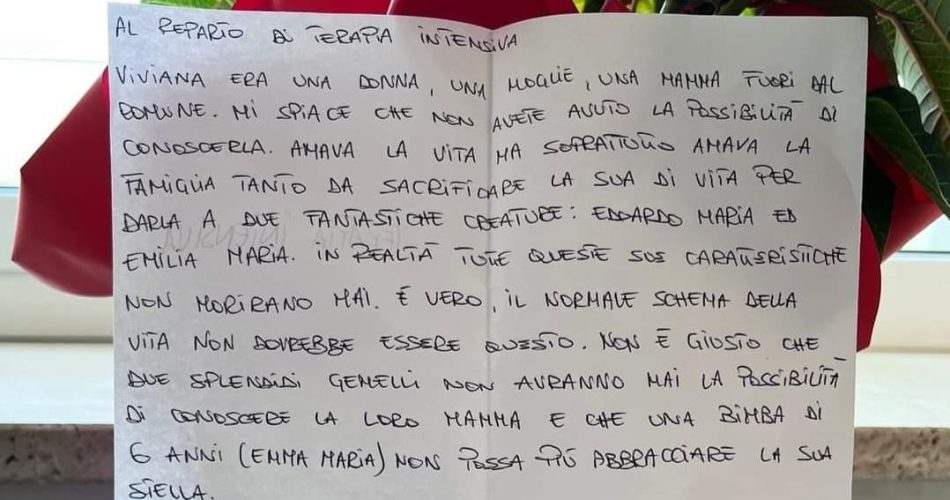 AL REPARTO DI TERAPIA INTENSIVA
VIVIANA ERA UNA DONNA, UNA MOGLIE, UNA MAMMA FUORI DAL
COMUNE. MI SPIACE CHE NON AVETE AVUTO LA POSSIBILITÀ DI
CONOSCERLA. AMAVA LA VITA MA SOPRATTUTTO AMAVA LA
FAMIGLIA TANTO DA SACRIFICARE LA SUA DI VITA PER
DARLA A DUE FANTASTICHE CREATURE: EDOARDO MARIA ED
EMILIA MARIA. IN REALTÀ TUTTE QUESTE SUE CARATTERISTICHE
NON MORIRANO MAI. È VERO, IL NORMALE SCHEMA DELLA
VITA NON DOVREBBE ESSERE QUESTO. NON È GIUSTO CHE
DUE SPLENDIDI GEMELLI NON AVRANNO MAI LA POSSIBILITÀ
DI CONOSCERE LA LORO MAMMA E CHE UNA BIMBA DI
6 ANNI (EMMA MARIA) NON POSSA PIÙ ABBRACCIARE LA SUA
STELLA.